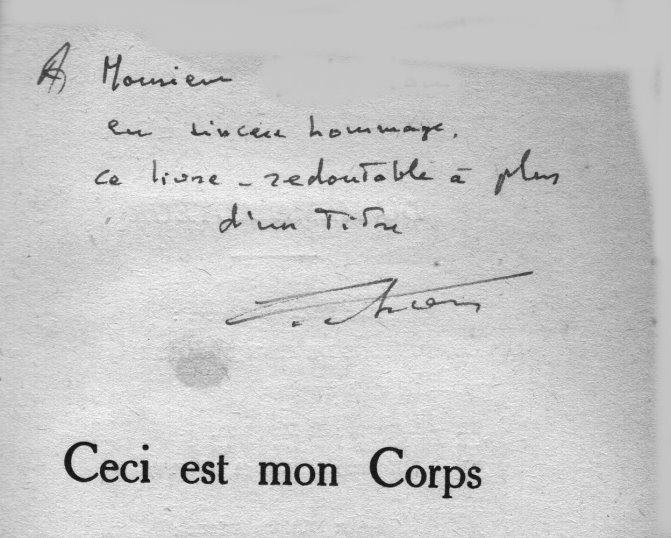 A Monsieur
en sincère hommage,
ce livre - redoutable à plus
d'un Titre
Ceci est mon Corps